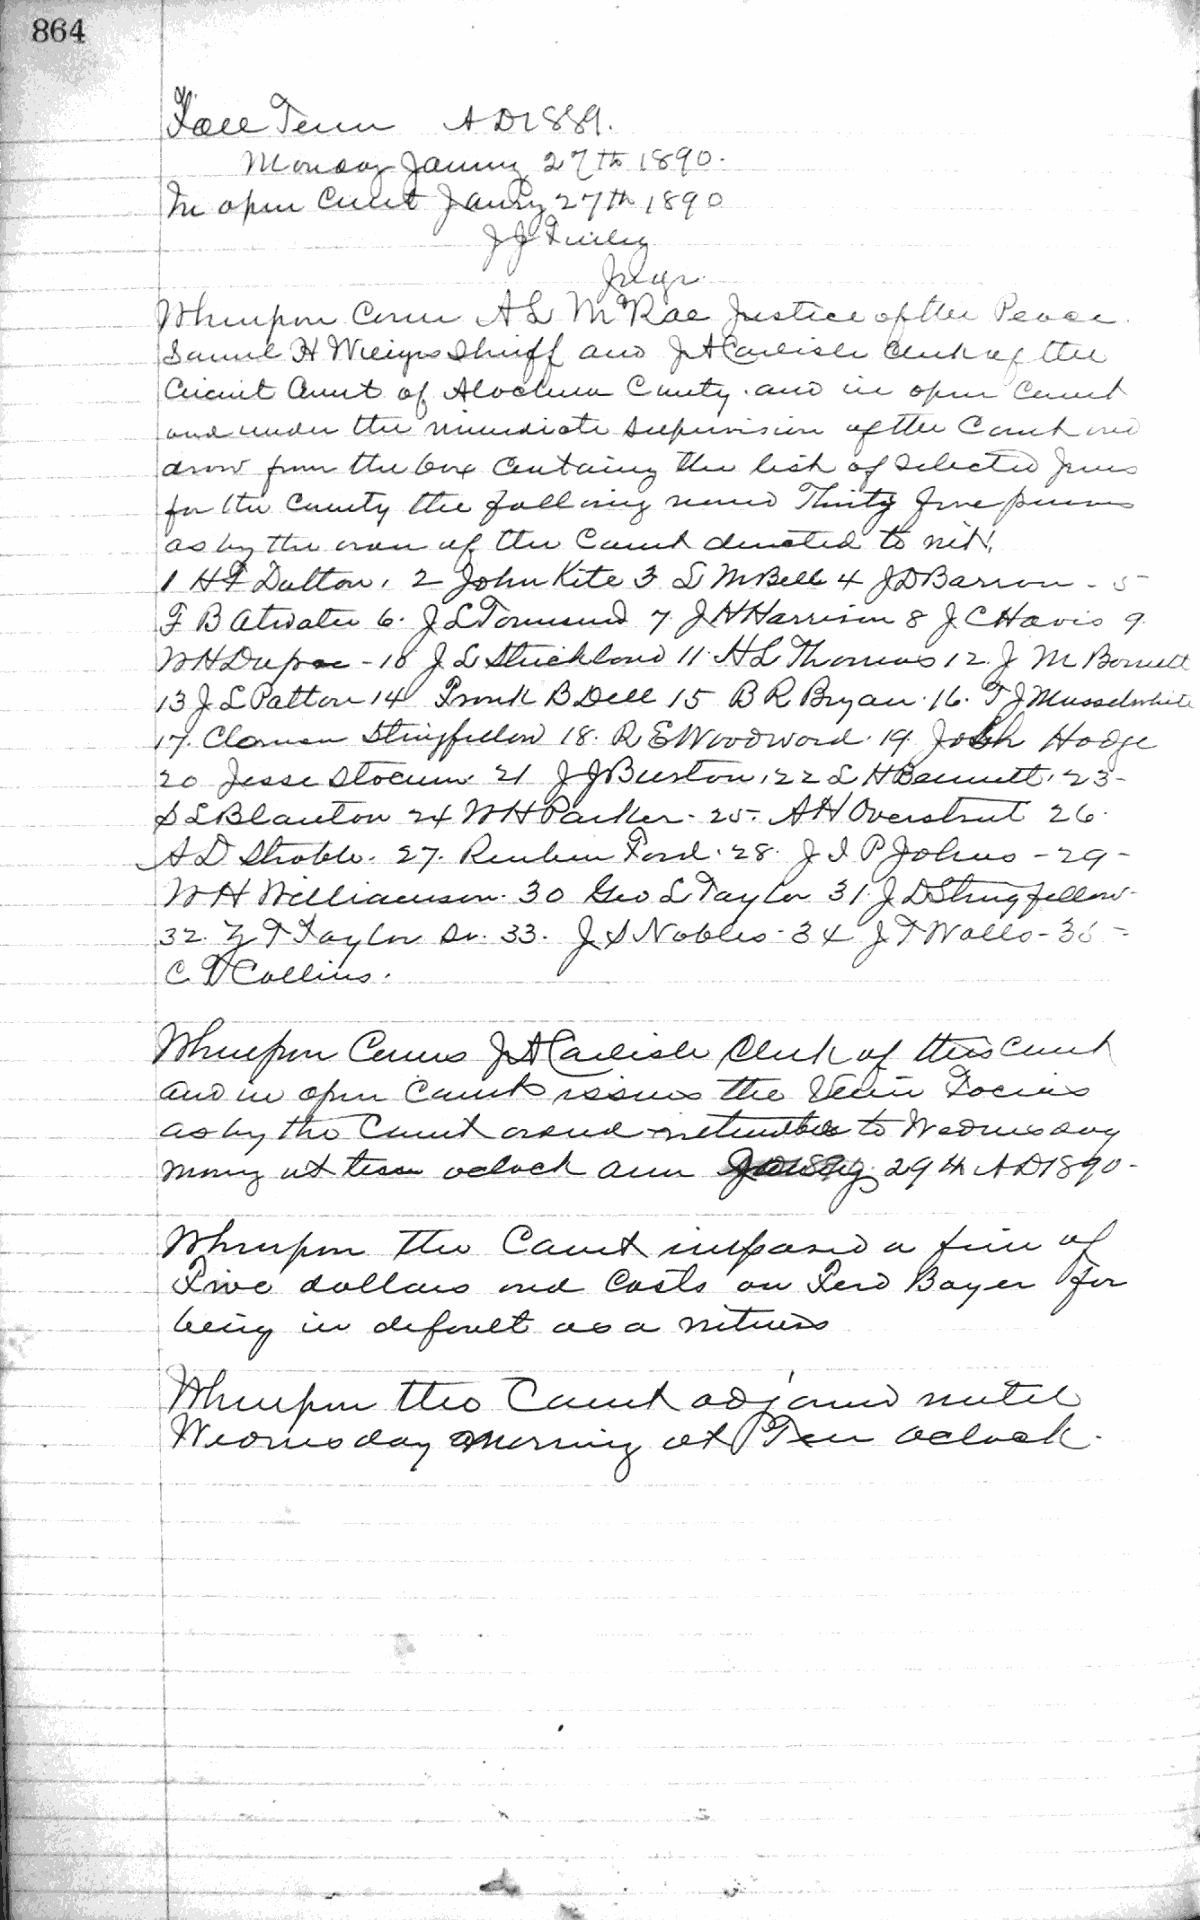 864
Fall Term AD 1889.
Monday January 27th 1890.
In open Court Jan'ry 27th 1890
J J Finley
Judge.
Whereupon Come A L McRae Justice of the Peace.
Samuel H Wienges Sheriff and J A Carlisle Clerk of the
Circuit Court of Alachua County. and in open Court
and under the immediate supervision of the Court and
draw from the box containing the list of selected Jurors
for the County the following named Thirty five persons
as by the order of the Court directed to wit.
1 H F Dutton. 2 John Kite 3 L M Bell 4 J D Barrow - 5
F B Atwater 6. J L Townsend 7. J H Harrison 8 J C Havis 9.
W H Dupree - 10 J L Strickland 11 H L Thomas 12. J M Barnett
13 J L Patton 14 Frank B Dell 15 B R Bryan. 16. T J Musselwhite
17. Stringfellow 18. R E Woodward. 19 Josh Hodge
20 Jesse Slocum. 21 J J Burton. 22 L H Bennett. 23-
S L Blanton 24 W H Parker. 25. A H Overstreet 26.
A D Stroble. 27. Reuben Ford. 28. J I P Johns - 29 -
W H Williamson. 30 Geo L Taylor 31. J D Stringfellow
32. Z T Taylor Sr. 33. J S Nobles - 34 J T Walls - 35 -
C V Collins.
Whereupon Comes J A Carlisle Clerk of this Court
and in open Court issues the Venire Facias
as by the Court ordered returnable to Wednesday
morng at ten oclock am 29th AD 1890 -
Whereupon the Court imposed a fine of
Five dollars and Costs on Ferd Bayer for
being in default as a witness
Whereupon the Court adjourned until
Wednesday morning at Ten oclock.